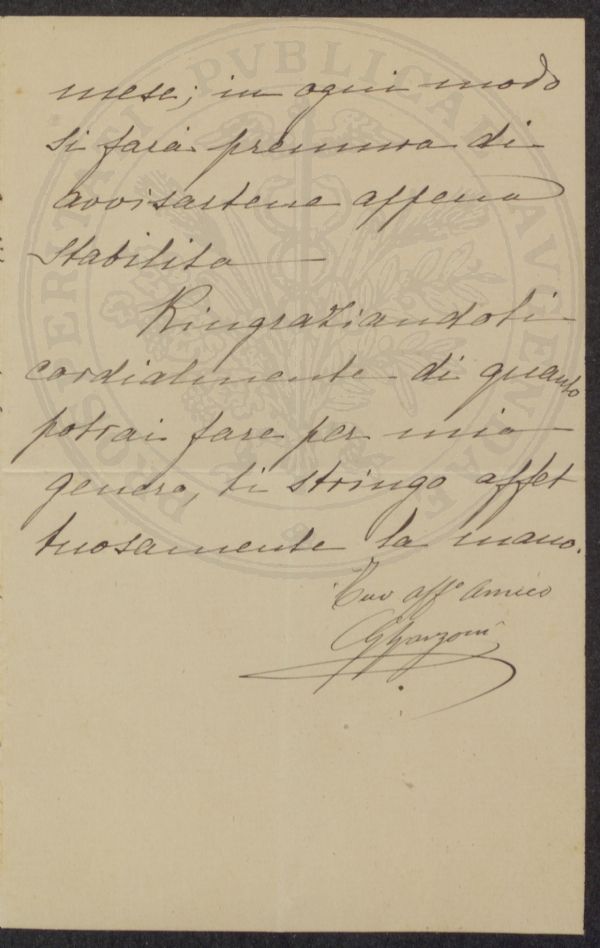 mese; in ogni modo
si farà premura di
avvisartene appena
stabilita
Ringraziandoti
cordialmente di quanto
potrai fare per mio
genero, ti stringo affet
tuosamente la mano.
Tuo affº amico
PROSPERITATI PVBLICAE AVGENDAE